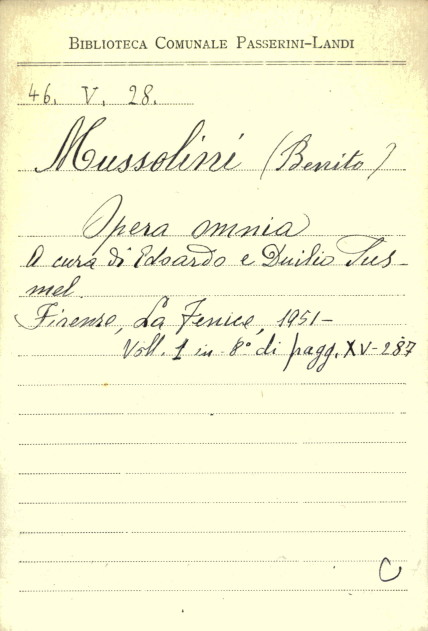 BIBLIOTECA COMUNALE PASSERINI-LANDI
46. V. 28.
Mussolini (Benito)
Opera omnia
A cura di Edoardo e Duilio Sus-
mel.
Firenze, La Fenice, 1951-
Voll. 1 in 8° di pagg. XV-287
C